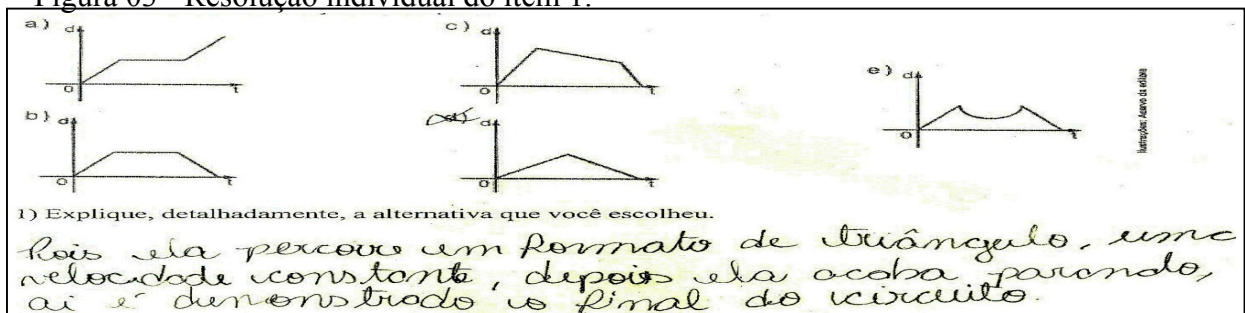 Figura 03 - Resolução individual do item 1.
a) d
0 t
b) d
0 t
c) d
0 t
d
0 t
e) d
0 t
Ilustrações: Acervo da editora
1) Explique, detalhadamente, a alternativa que você escolheu.
Pois ela percorre um formato de triângulo, uma
velocidade constante, depois ela acaba parando,
ai é demonstrado o final do circuito.